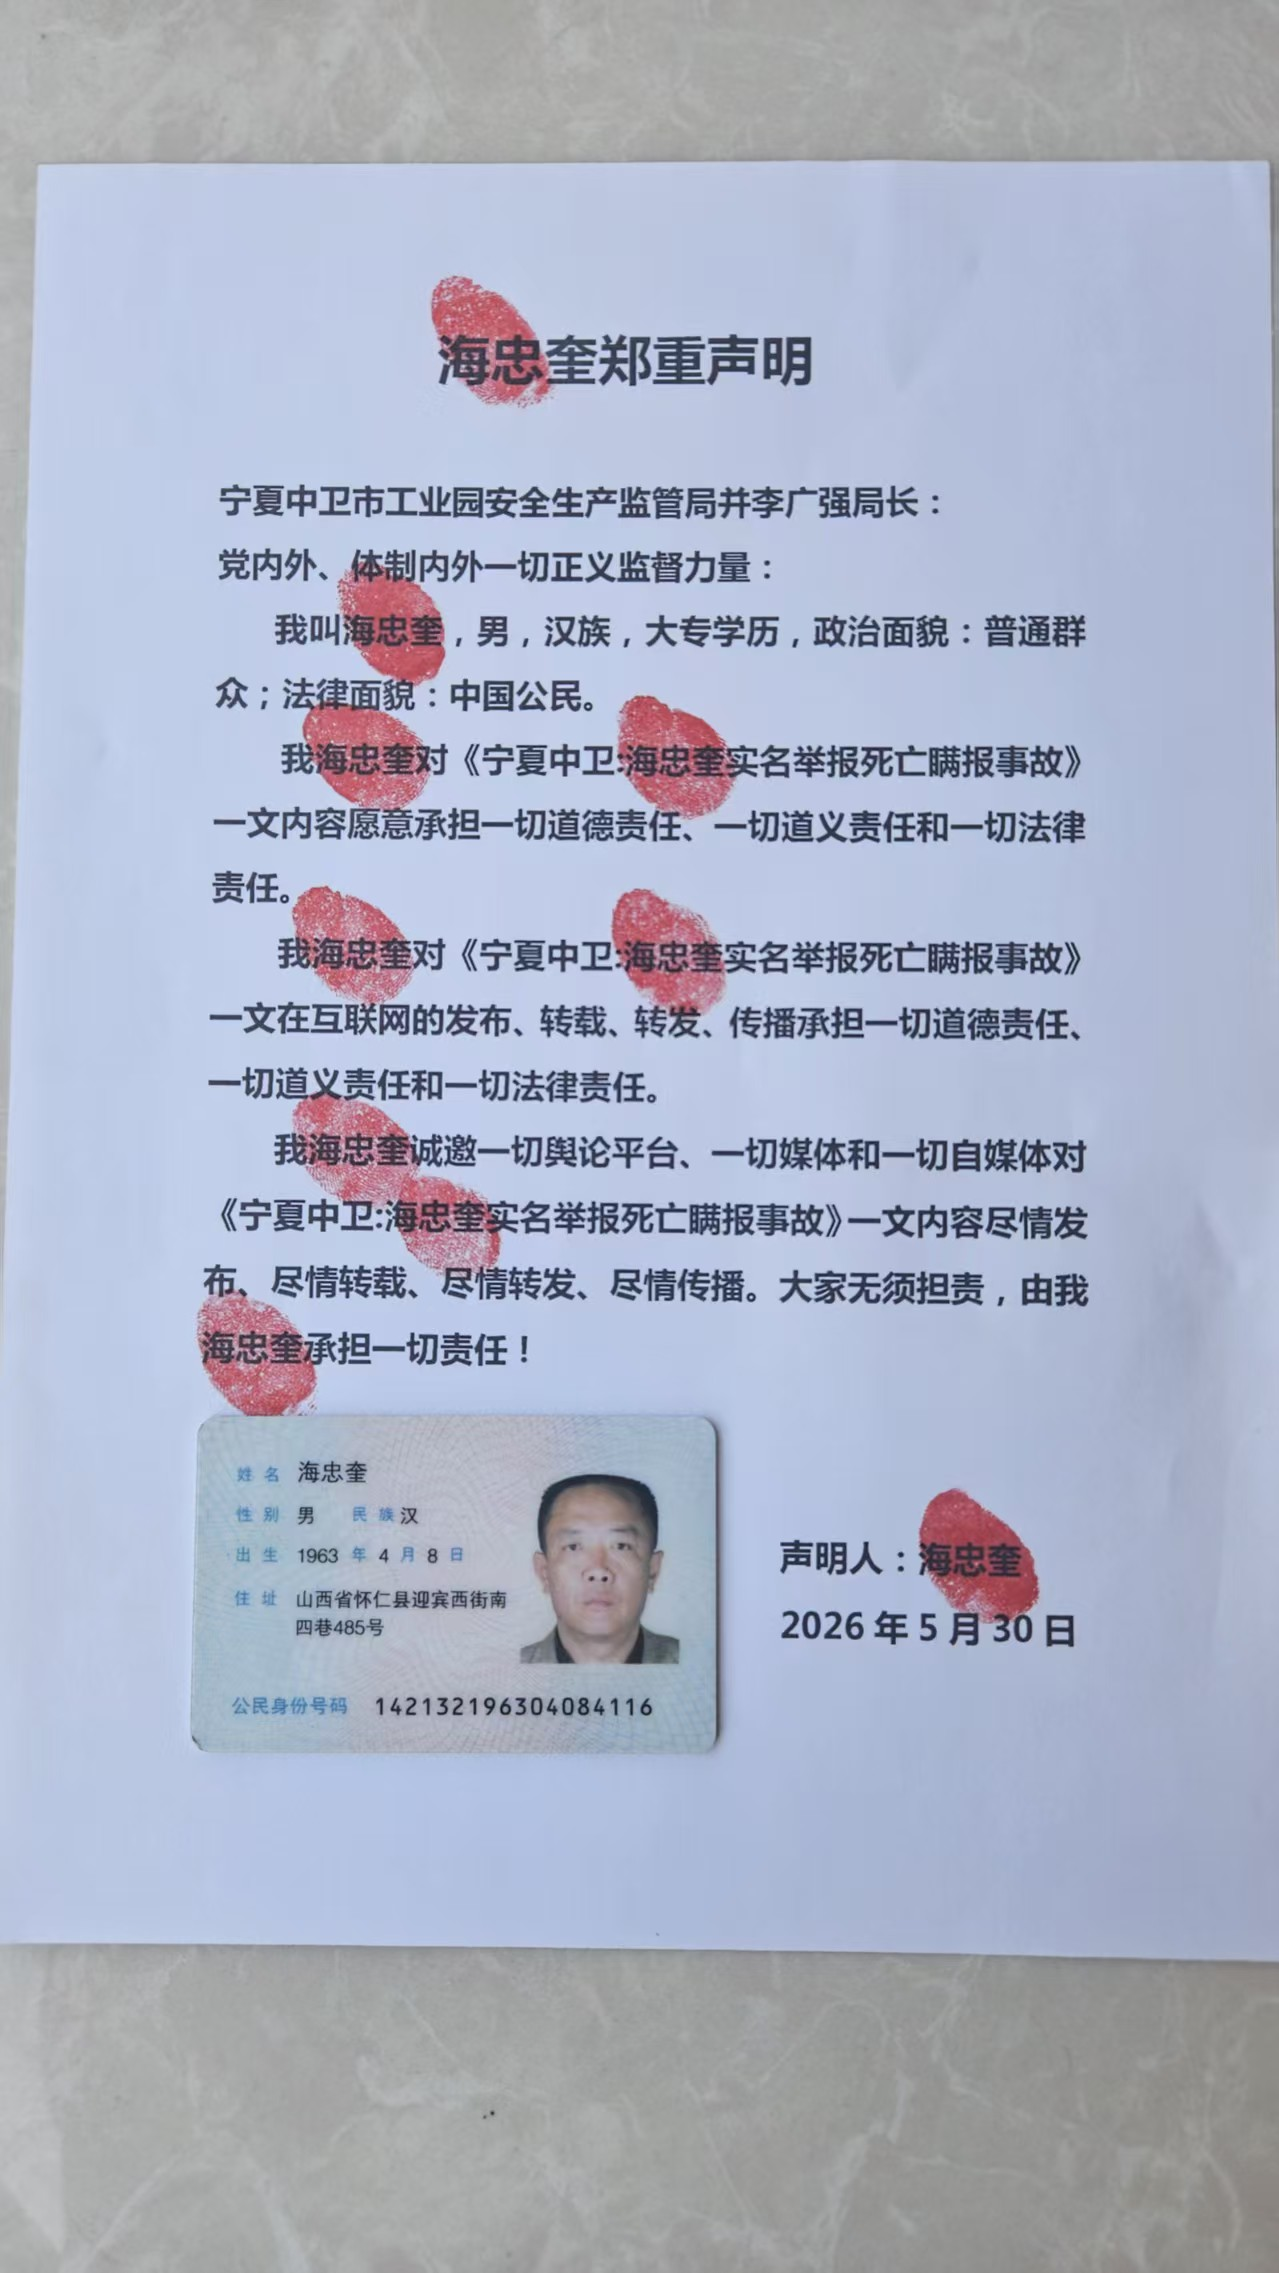 海忠奎郑重声明
宁夏中卫市工业园安全生产监管局并李广强局长：
党内外、体制内外一切正义监督力量：
我叫海忠奎，男，汉族，大专学历，政治面貌：普通群
众；法律面貌：中国公民。
我海忠奎对《宁夏中卫:海忠奎实名举报死亡瞒报事故》
一文内容愿意承担一切道德责任、一切道义责任和一切法律
责任。
我海忠奎对《宁夏中卫:海忠奎实名举报死亡瞒报事故》
一文在互联网的发布、转载、转发、传播承担一切道德责任、
一切道义责任和一切法律责任。
我海忠奎诚邀一切舆论平台、一切媒体和一切自媒体对
《宁夏中卫:海忠奎实名举报死亡瞒报事故》一文内容尽情发
布、尽情转载、尽情转发、尽情传播。大家无须担责，由我
海忠奎承担一切责任！
姓名 海忠奎
性别 男 民族 汉
出生 1963 年 4 月 8 日
住址 山西省怀仁县迎宾西街南
四巷485号
公民身份号码 142132196304084116
声明人：海忠奎
2026 年 5 月 30 日